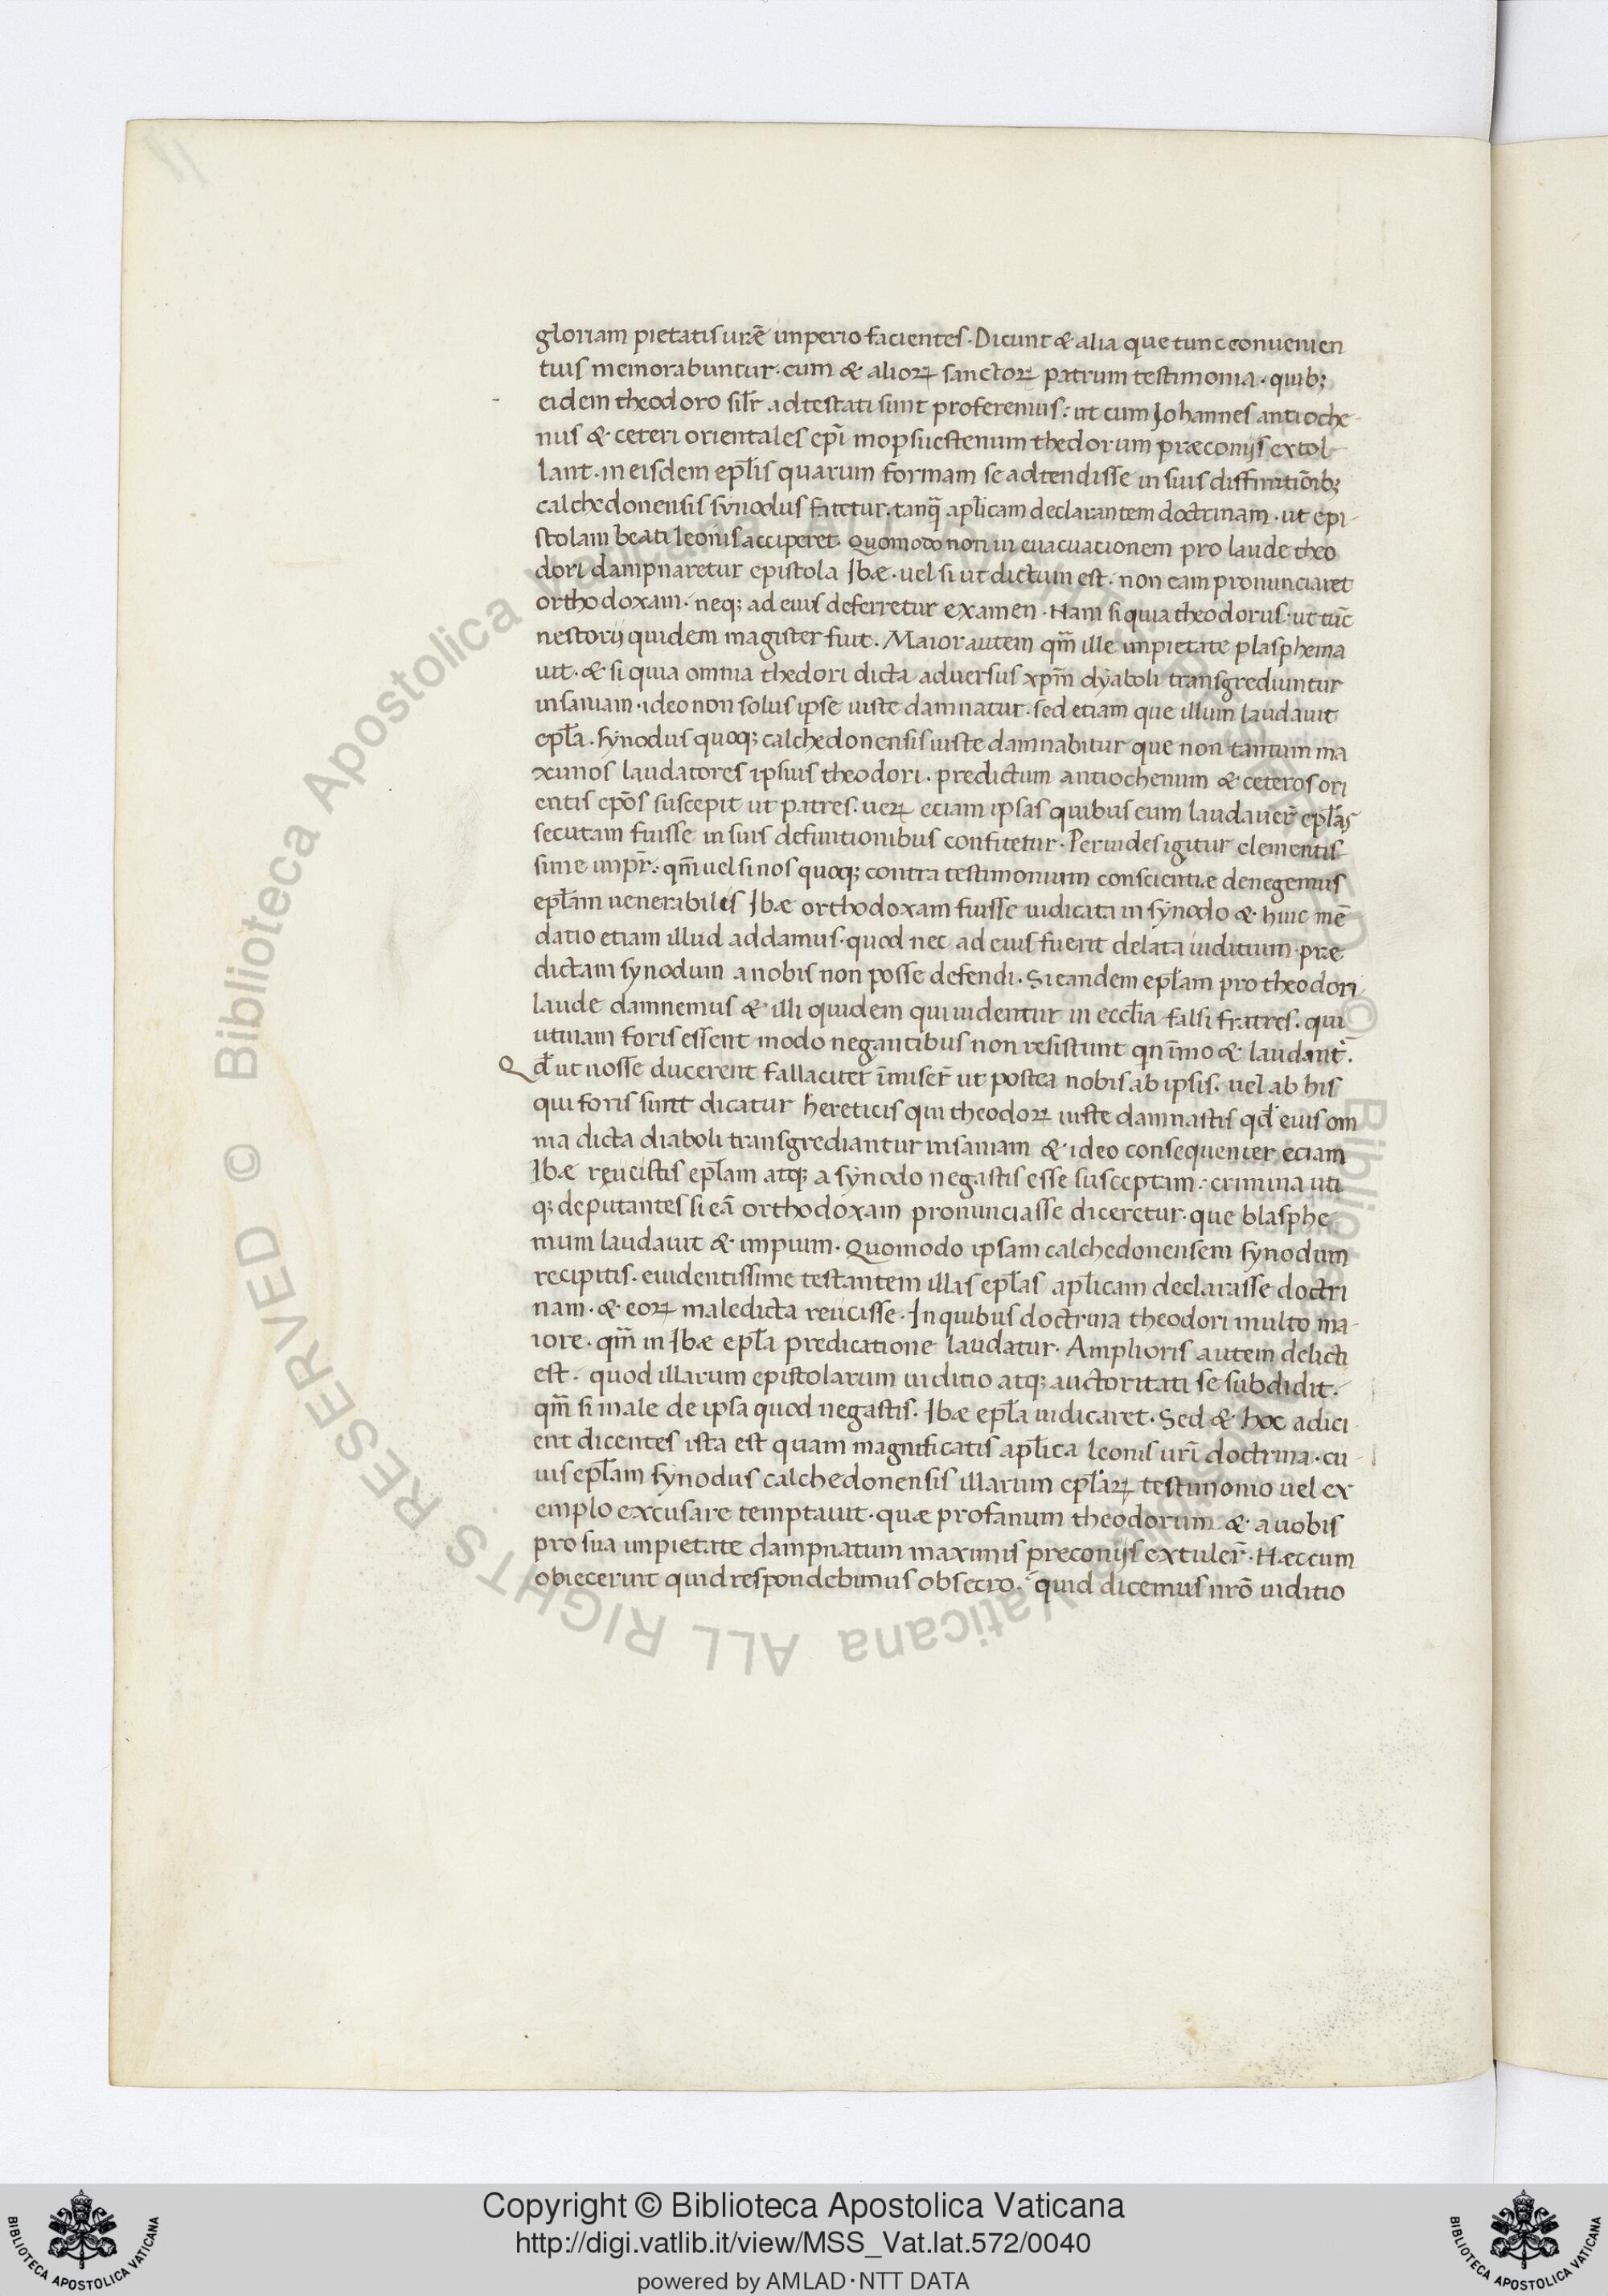 gloriam pietatis urẽ imperio facientes. Dicunt & alia que tunc conuenien
tius memorabuntur. cum & alioꝝ sanctoꝝ patrum testimonia. quib;
eidem theodoro silr̃ adtestati sunt proferemus: ut cum Johannes antioche-
nus & ceteri orientales ep̃i mopsuestenum thedorum præconijs extol-
lant. in eisdem ep̃lis quarum formam se adtendisse in suis diffinitiõib;
calchedonensis synodus fatetur. tanq̃ ap̃licam declarantem doctrinam. ut epi-
stolam beati leonis acciperet. Quomodo non in euacuacionem pro laude theo
dori dampnaretur epistola Ibæ. uel si ut dictum est. non eam pronunciaret
orthodoxam. neq; ad eius deferretur examen. Nam si quia theodorus: ut tũc
nestorij quidem magister fuit. Maior autem qm̃ ille impietate plasphema
uit. & si quia omnia thedori dicta aduersus xpm̃ dyaboli transgrediuntur
insaniam. ideo non solus ipse iuste damnatur. sed etiam que illum laudauit
ep̃la. synodus quoq; calchedonensis iuste damnabitur que non tantum ma
ximos laudatores ipsius theodori. predictum antiochenum & ceteros ori
entis ep̃os suscepit ut patres. ueꝝ eciam ipsas quibus eum laudauer̃ ep̃las
secutam fuisse in suis definitionibus confitetur. Peruides igitur clementis
sime impr̃: qm̃ uel si nos quoq; contra testimonium conscientiæ denegemus
ep̃lam uenerabilis Ibæ orthodoxam fuisse iudicata in synodo & huic mẽ
datio etiam illud addamus. quod nec ad eius fuerit delata iuditium. præ
dictam synodum a nobis non posse defendi. Si eandem ep̃lam pro theodori
laude damnemus & illi quidem qui uidentur in eccl̃ia falsi fratres. qui
utinam foris essent modo negantibus non resistunt qn ĩmo & laudant.
Qd̃ ut nosse ducerent fallaciter ĩmiser̃ ut postea nobis ab ipsis. uel ab his
qui foris sunt dicatur hereticis qui theodoꝝ iuste damnastis qd̃ eius om
nia dicta diaboli transgrediantur insaniam & ideo consequenter eciam
Ibæ reiicistis ep̃lam atq; a synodo negastis esse susceptam: crimina uti
q; deputantes si eã orthodoxam pronunciasse diceretur. que blasphe
mum laudauit & impium. Quomodo ipsam calchedonensem synodum
recipitis. euidentissime testantem illas ep̃las ap̃licam declarasse doctri
nam. & eoꝝ maledicta reiicisse. In quibus doctrina theodori multo ma-
iore. qm̃ in Ibæ ep̃la predicatione laudatur. Amplioris autem delicti
est. quod illarum epistolarum iuditio atq; auctoritati se subdidit.
qm̃ si male de ipsa quod negastis. Ibæ ep̃la iudicaret. Sed & hoc adici
ent dicentes ista est quam magnificatis ap̃lica leonis urĩ doctrina. cu-
ius ep̃lam synodus calchedonensis illarum ep̃laꝝ testimonio uel ex
emplo excusare temptauit. quæ profanum theodorum & a uobis
pro sua impietate dampnatum maximis preconijs extuler̃. Hæc cum
obiecerint quid respondebimus obsecro. quid dicemus nrõ iuditio
Copyright © Biblioteca Apostolica Vaticana
http://digi.vatlib.it/view/MSS_Vat.lat.572/0040
powered by AMLAD·NTT DATA